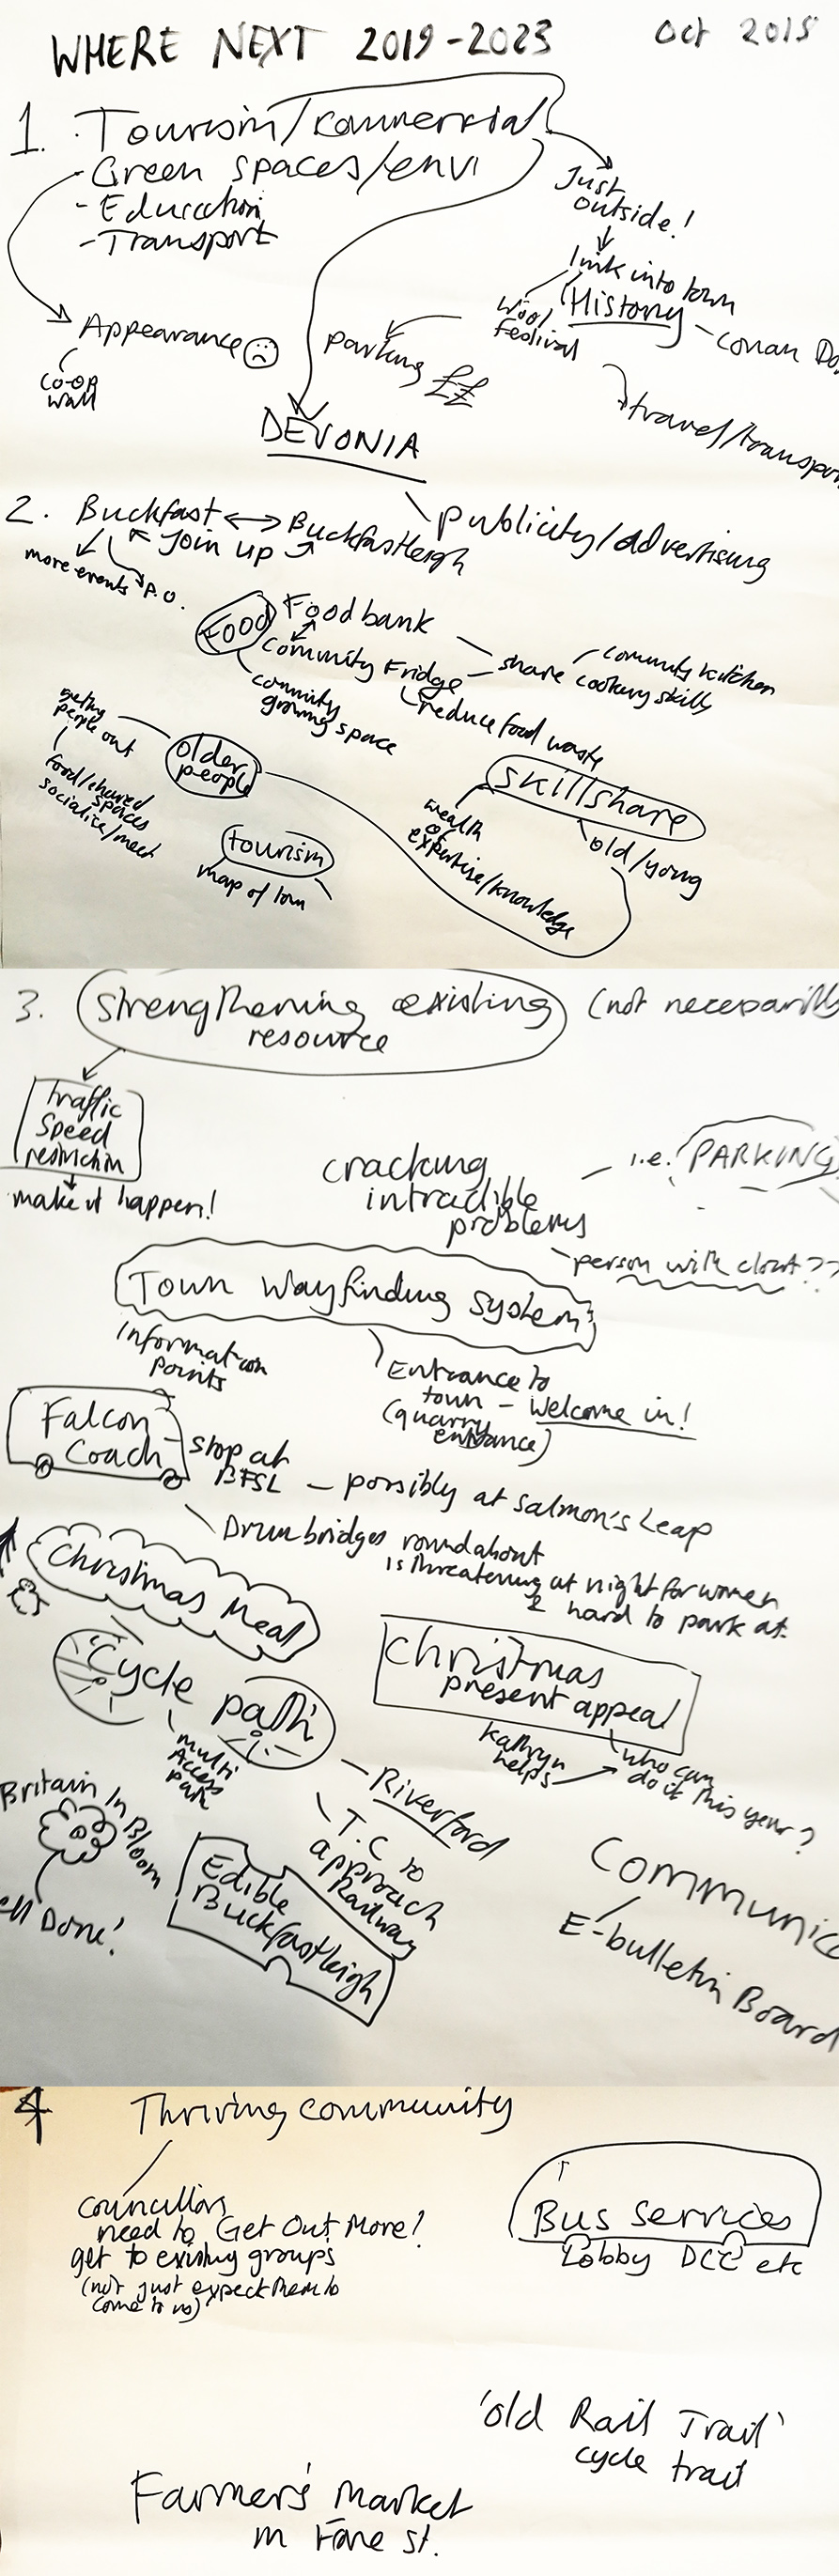 WHERE NEXT 2019-2023
Oct 2018
1. Tourism/commercial
- Green spaces/envi
- Education
- Transport
Just
outside!
link into town
Wool
Festival
History
- Conan Do
travel/transpor
parking ££
Appearance
CO-OP
wall
DEVONIA
publicity/advertising
2. Buckfast
Join up
Buckfastleigh
more events
P.O.
FOOD
Food bank
Community Fridge
share
community kitchen
cookery skills
reduce food waste
community
growing space
getting
people out
older
people
food/shared
spaces
socialise/meet
tourism
map of town
skillshare
wealth
of
expertise/knowledge
old/young
3. Strengthening existing
resource
(not necessarily
traffic
speed
restriction
make it happen!
cracking
intractible
problems
i.e. PARKING
person with clout??
Town Wayfinding system
Information
points
Entrance to
town - Welcome in!
(quarry
entrance)
Falcon
Coach
stop at
BFSL - possibly at Salmon's Leap
Drumbridges roundabout
is threatening at night for women
& hard to park at.
Christmas Meal
Cycle path
Multi
Access
path
- Riverford
T.C to
approach
Railway
Christmas
present appeal
Kathryn
helps
who can
do it this year?
Britain In Bloom
ell Done!
Edible
Buckfastleigh
Communica
E-bulletin Board
4 Thriving community
Councillors
need to Get Out More!
get to existing groups
(not just expect them to
come to us)
Bus services
Lobby DCC etc
'old Rail Trail'
cycle trail
Farmer's Market
in Fore St.